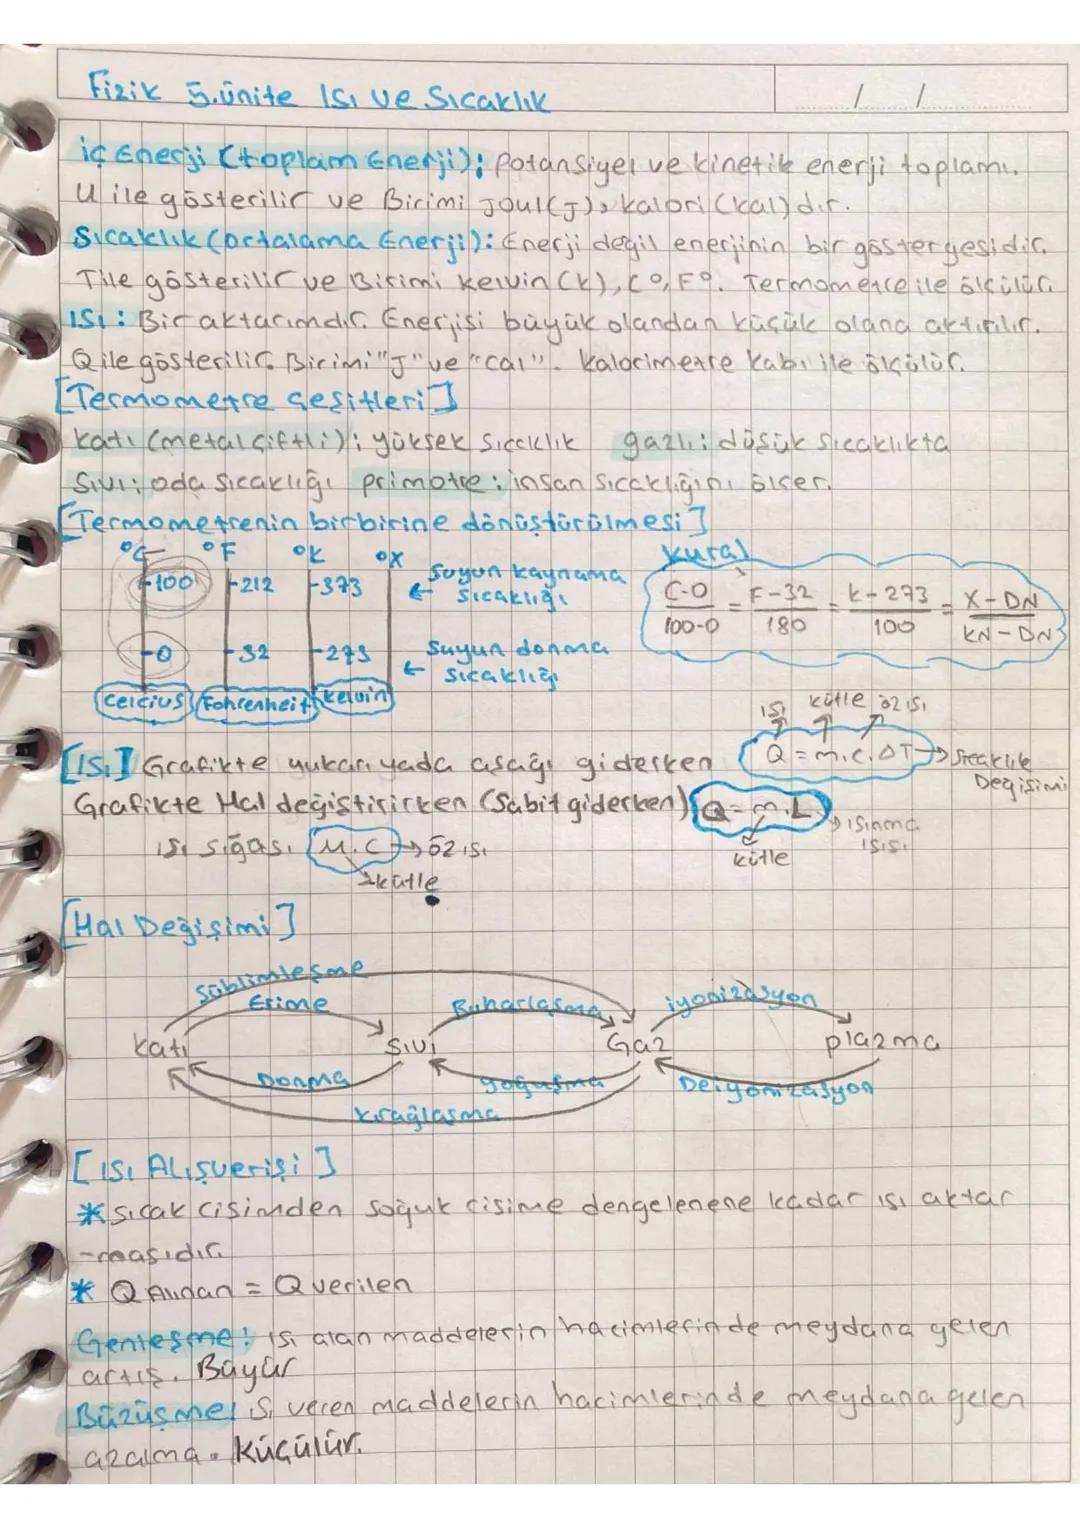 Fizik 5.ünite ISI ve Sıcaklık
/ /
iç Enerji (toplam Enerji); potansiyel ve kinetik enerji toplamı.
U ile gösterilir ve Birimi Joul(J), kalori (kal) dır.
Sıcaklık (ortalama Enerji): Enerji değil enerjinin bir göstergesidir.
T ile gösterilir ve Birimi kelvin (K), C°, F°. Termometre ile ölçülür.
ISI: Bir aktarımdır. Enerjisi büyük olandan küçük olana aktırılır.
Q ile gösterilir. Birimi "J" ve "cal". kalorimetre kabı ile ölçülür.
[Termometre Çeşitleri]
katı (metal çiftli); yüksek sıcaklık gazlı: düşük sıcaklıkta
Sıvı; oda sıcaklığı primotre: insan sıcaklığını ölçer.
[Termometrenin birbirine dönüştürülmesi]
°C °F °K °X kural
100 212 373 ← Suyun kaynama sıcaklığı
0 32 273 ← Suyun donma sıcaklığı
C-0/100-0 = F-32/180 = K-273/100 = X-DN/KN-DN
Celcius Fahrenheit Kelvin
ısı kütle öz ısı
[ISI] Grafikte yukarı yada aşağı giderken Q=m.c.ΔT → Sıcaklık Değişimi
Grafikte Hal değiştirirken (Sabit giderken) Q=m.L → ısınma ısısı
kütle
ısı sığası M.C → öz ısı
kütle
[Hal Değişimi]
Süblimleşme
Erime Buharlaşma iyonizasyon
Katı Sıvı Gaz plazma
Donma yoğuşma Deiyonizasyon
kırağlaşma
[ISI Alışverişi]
* Sıcak cisimden soğuk cisime dengelenene kadar ısı aktar
-masıdır.
* Q Alınan = Q verilen
Genleşme: ısı alan maddelerin hacimlerinde meydana gelen
artış. Büyür
Büzüşme: ısı veren maddelerin hacimlerinde meydana gelen
azalma. Küçülür.